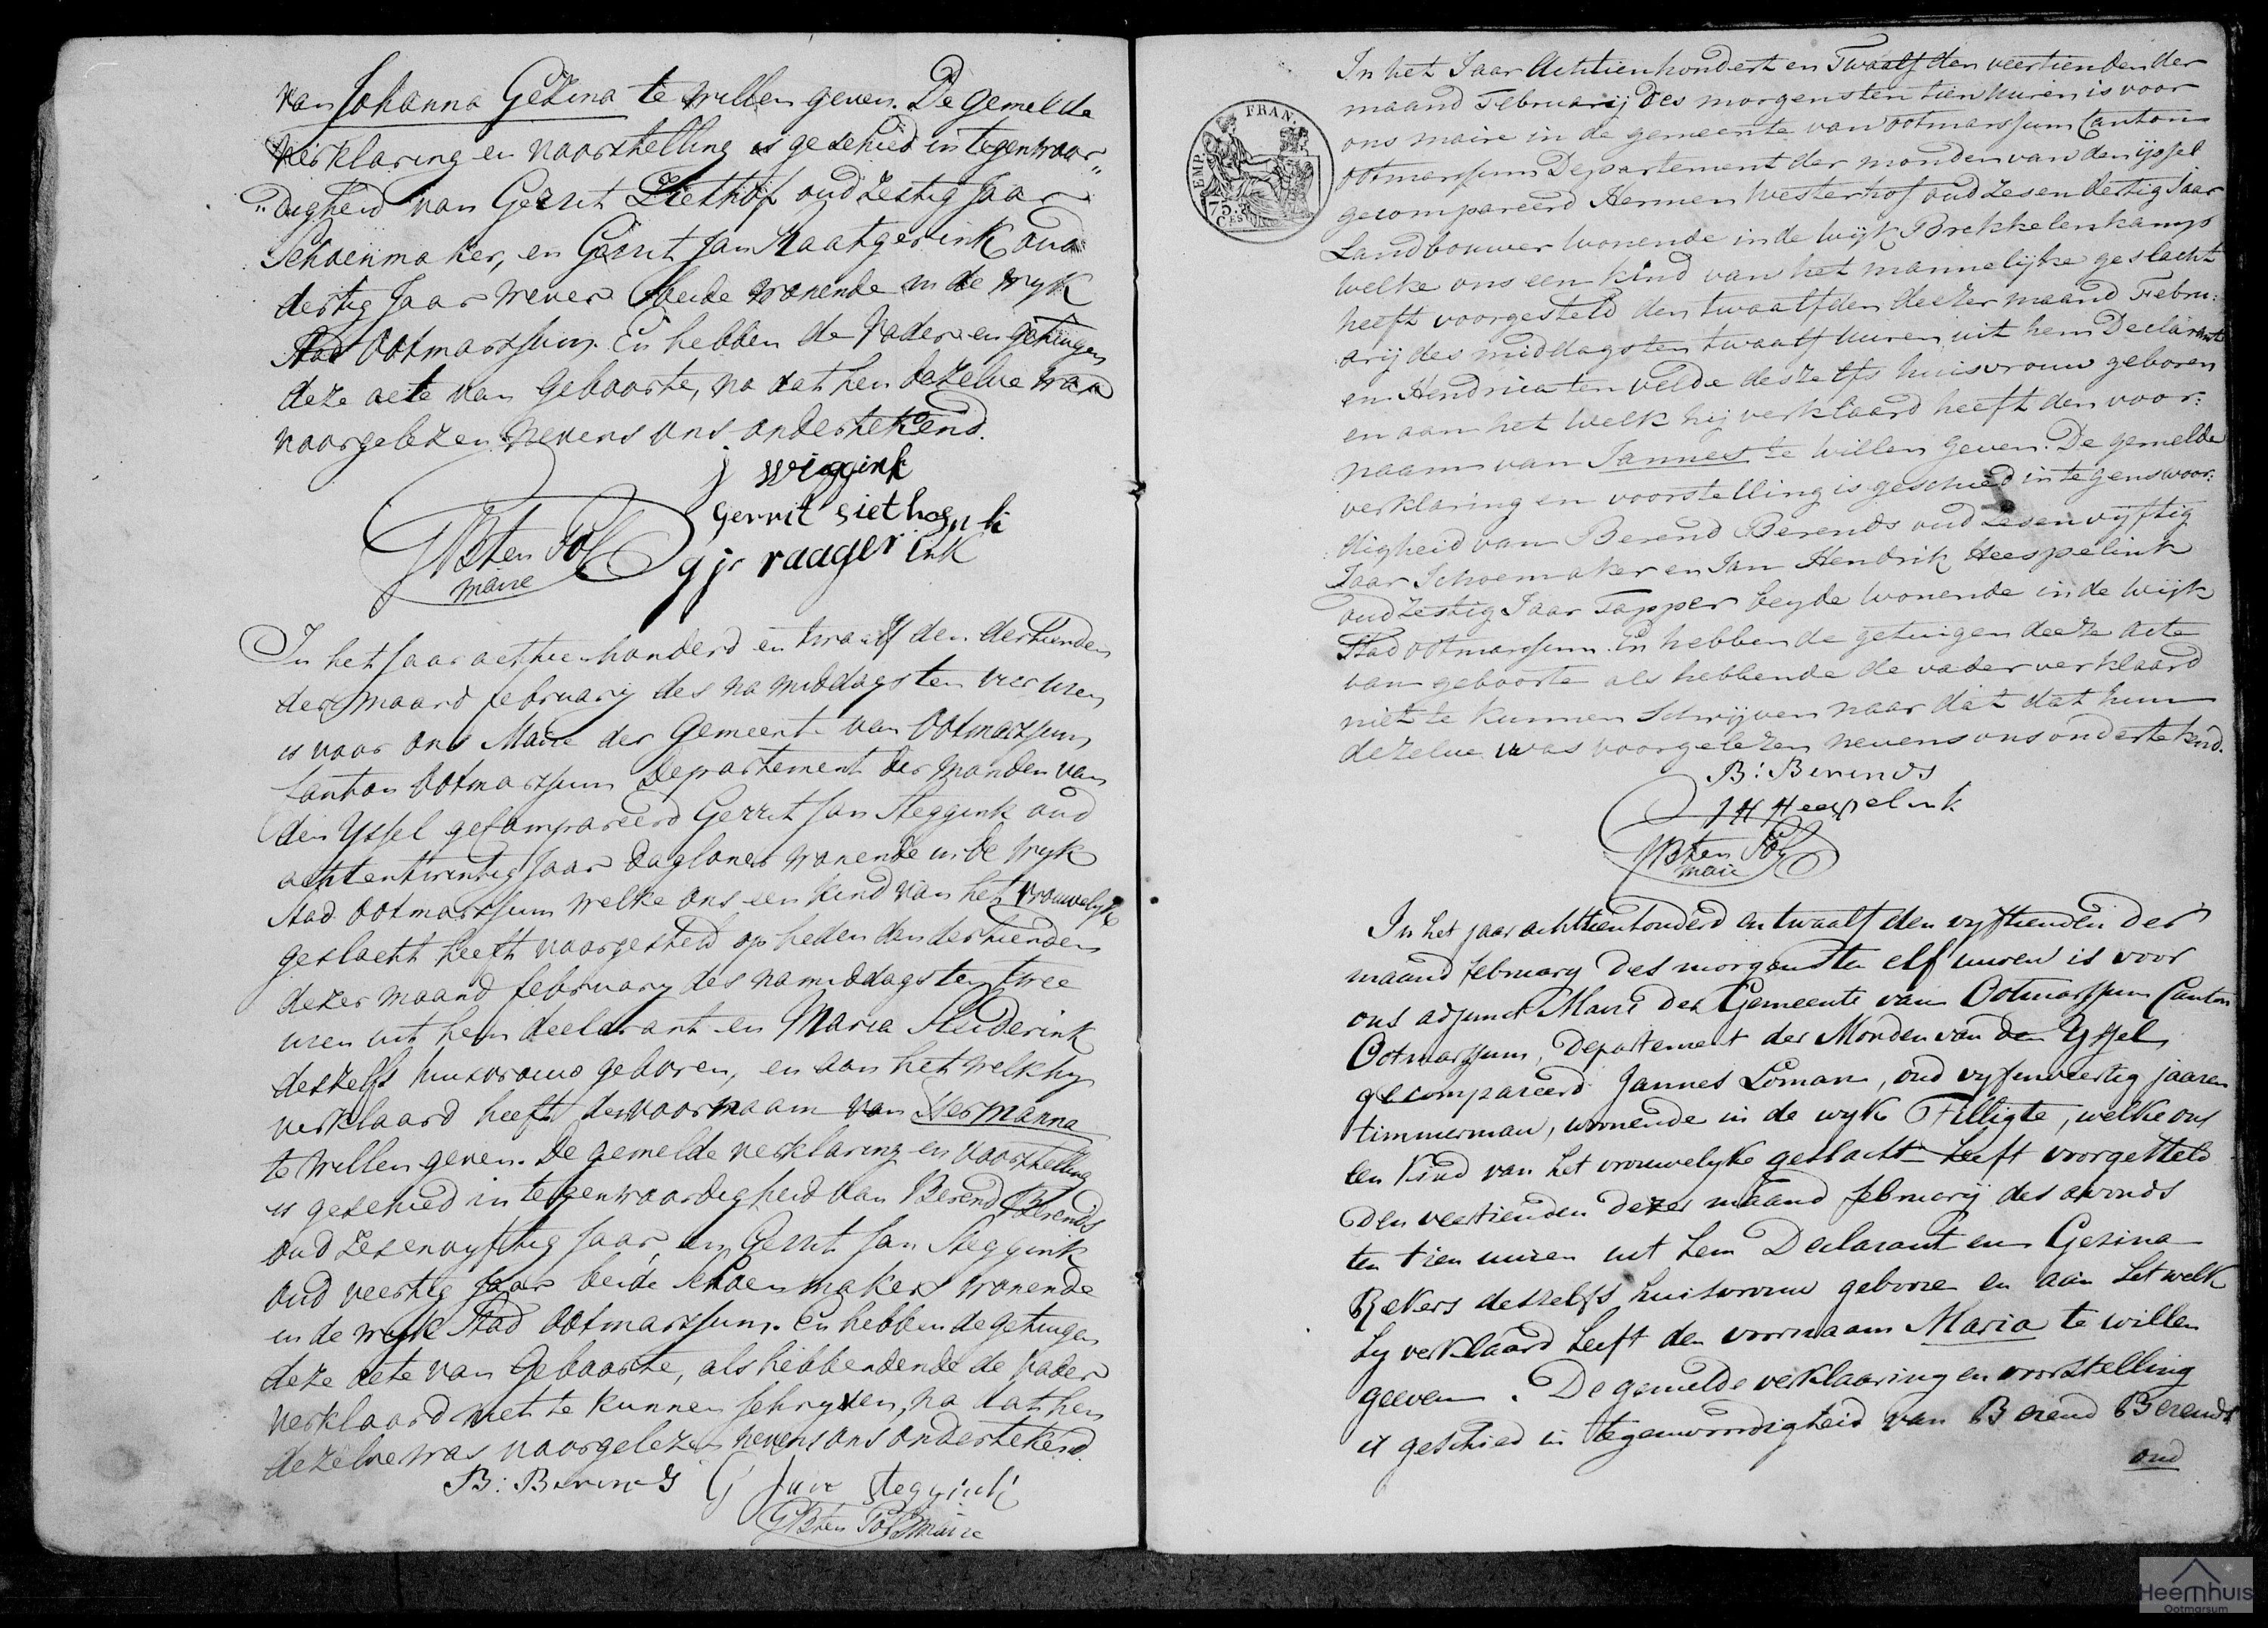 van Johanna Gezina te willen geven. De gemelde
verklaring en voorstelling is geschied in tegenwoor„
„digheid van Gerrit Ziethof oud zestig Jaar
Schoenmaker, en Gerrit Jan Raatgerink oud
dertig Jaar wever beide wonende in de wyk
Stad Ootmarssum. En hebben de Vader en getuigen
deze acte van geboorte, na dat hen dezelve was
voorgelezen nevens ons ondertekend.
j wiggink
gerrit siethof
gj raager ink
ten Pol
maire
In het Jaar achtienhonderd en twaalf den dertienden
der maand february des namiddags ten vier uren
is voor ons Maire der Gemeente van Ootmarssum
Canton Ootmarssum Departement der Monden van
den Yssel gecompareerd Gerrit Jan Steggink oud
achtentwintig Jaar dagloner wonende in de wyk
Stad Ootmarssum welke ons een kind van het vrouwelyk
geslacht heeft voorgesteld op heden den dertienden
dezer maand february des namiddags ten twee
uren uit hem declarant en Maria
deszelfs huisvrouw geboren, en aan het welk hy
verklaard heeft den voornaam van Hermanna
te willen geven. De gemelde verklaring en voorstelling
is geschied in tegenwoordigheid van Berend Berends
oud zesenvyftig Jaar, en Gerrit Jan Steggink
oud veertig Jaar beide Schoenmakers wonende
in de wyk Stad Ootmarssum. En hebben de getuigen
deze acte van Geboorte, als hebbendende de Vader
verklaard niet te kunnen schryven, na dat hen
dezelve was voorgelezen nevens ons ondertekend.
B: Berends G Jan steggink
ten Pol Maire
EMP. FRAN.
75.
In het Jaar Achtienhondert en Twaalf den veertienden der
maand Februarij des morgens ten tien uuren is voor
ons maire in de gemeente van ootmarssum Canton
ootmarssum Departement der monden van den ijssel
gecompareerd Hermen Westerhof oud zesendertig Jaar
Landbouwer wonende in de wijk Brekkelenkamp
welke ons een kind van het mannelijke geslacht
heeft voorgesteld den twaalfden deezer maand Febru:
arij des middags ten twaalf uuren uit hem Declarant
en Hendrica ten velde deszelfs huisvrouw geboren
en aan het welk hij verklaard heeft den voor:
naam van Jannes te willen geven. De gemelde
verklaring en voorstelling is geschied in tegenswoor:
digheid van Berend Berends oud zesenvyftig
Jaar Schoemaker en Jan Hendrik Heespelink
oud zestig Jaar Tapper beyde wonende in de wijk
Stad ootmarssum. En hebben de getuigen deeze acte
van geboorte als hebbende de vader verklaard
niet te kunnen Schrijven naar dat dat hun
dezelve was voorgelezen nevens ons ondertekend.
B: Berends
J H Heespelink
ten Pol
maire
In het jaar achttienhonderd en twaalf den vyftienden der
maand february des morgens ten elf uuren is voor
ons adjunct Maire der Gemeente van Ootmarssum Canton
Ootmarssum, Departement der Monden van den Yssel,
gecompareerd Jannes Loman, oud vyfenveertig jaaren
timmerman, woonende in de wyk Tilligte, welke ons
een kind van het vrouwelyke geslacht heeft voorgesteld
den veertienden dezer maand februarij des avonds
ten tien uuren uit hem Declarant en Gesina
Bekers deszelfs huisvrouw geboore en aan het welk
hy verklaard heeft den voornaam Maria te willen
geeven. De gemelde verklaaring en voorstelling
is geschied in tegenwoordigheid van Berend Berends
oud
Heemhuis
Ootmarsum